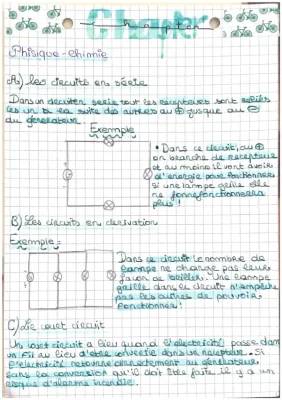 Chapter
chapter
Phisique-Chimie
A) Les circuits en série
Dans un circuit en série tout les récepteurs sont reliés
les un à la suite des autres au ⊕ jusque au ⊖
du générateur.
Exemple
• Dans ce circuit, au ⊕
on branche de recepteur
et au moins il vont à avoir
d'énergie pour fonctionner
Si une lampe grille elle
ne fonnefonctionnera
plus !
B) Les circuits en dérivation
Exemple :
Dans ce circuit le nombre de
lampe ne change pas leur
façon de briller. Une lampe
grillée dans ce circuit n'empêche
pas les autres de pouvoir
fonctionner !
C) Le court circuit
Un court circuit a lieu quand l'électricité passe dans
un fil au lieu d'être convertie dans un récepteur. Si
l'électricité retourne directement au générateur
sans la conversion qu'il doit être faite il y a un
risque d'alarme incendie.